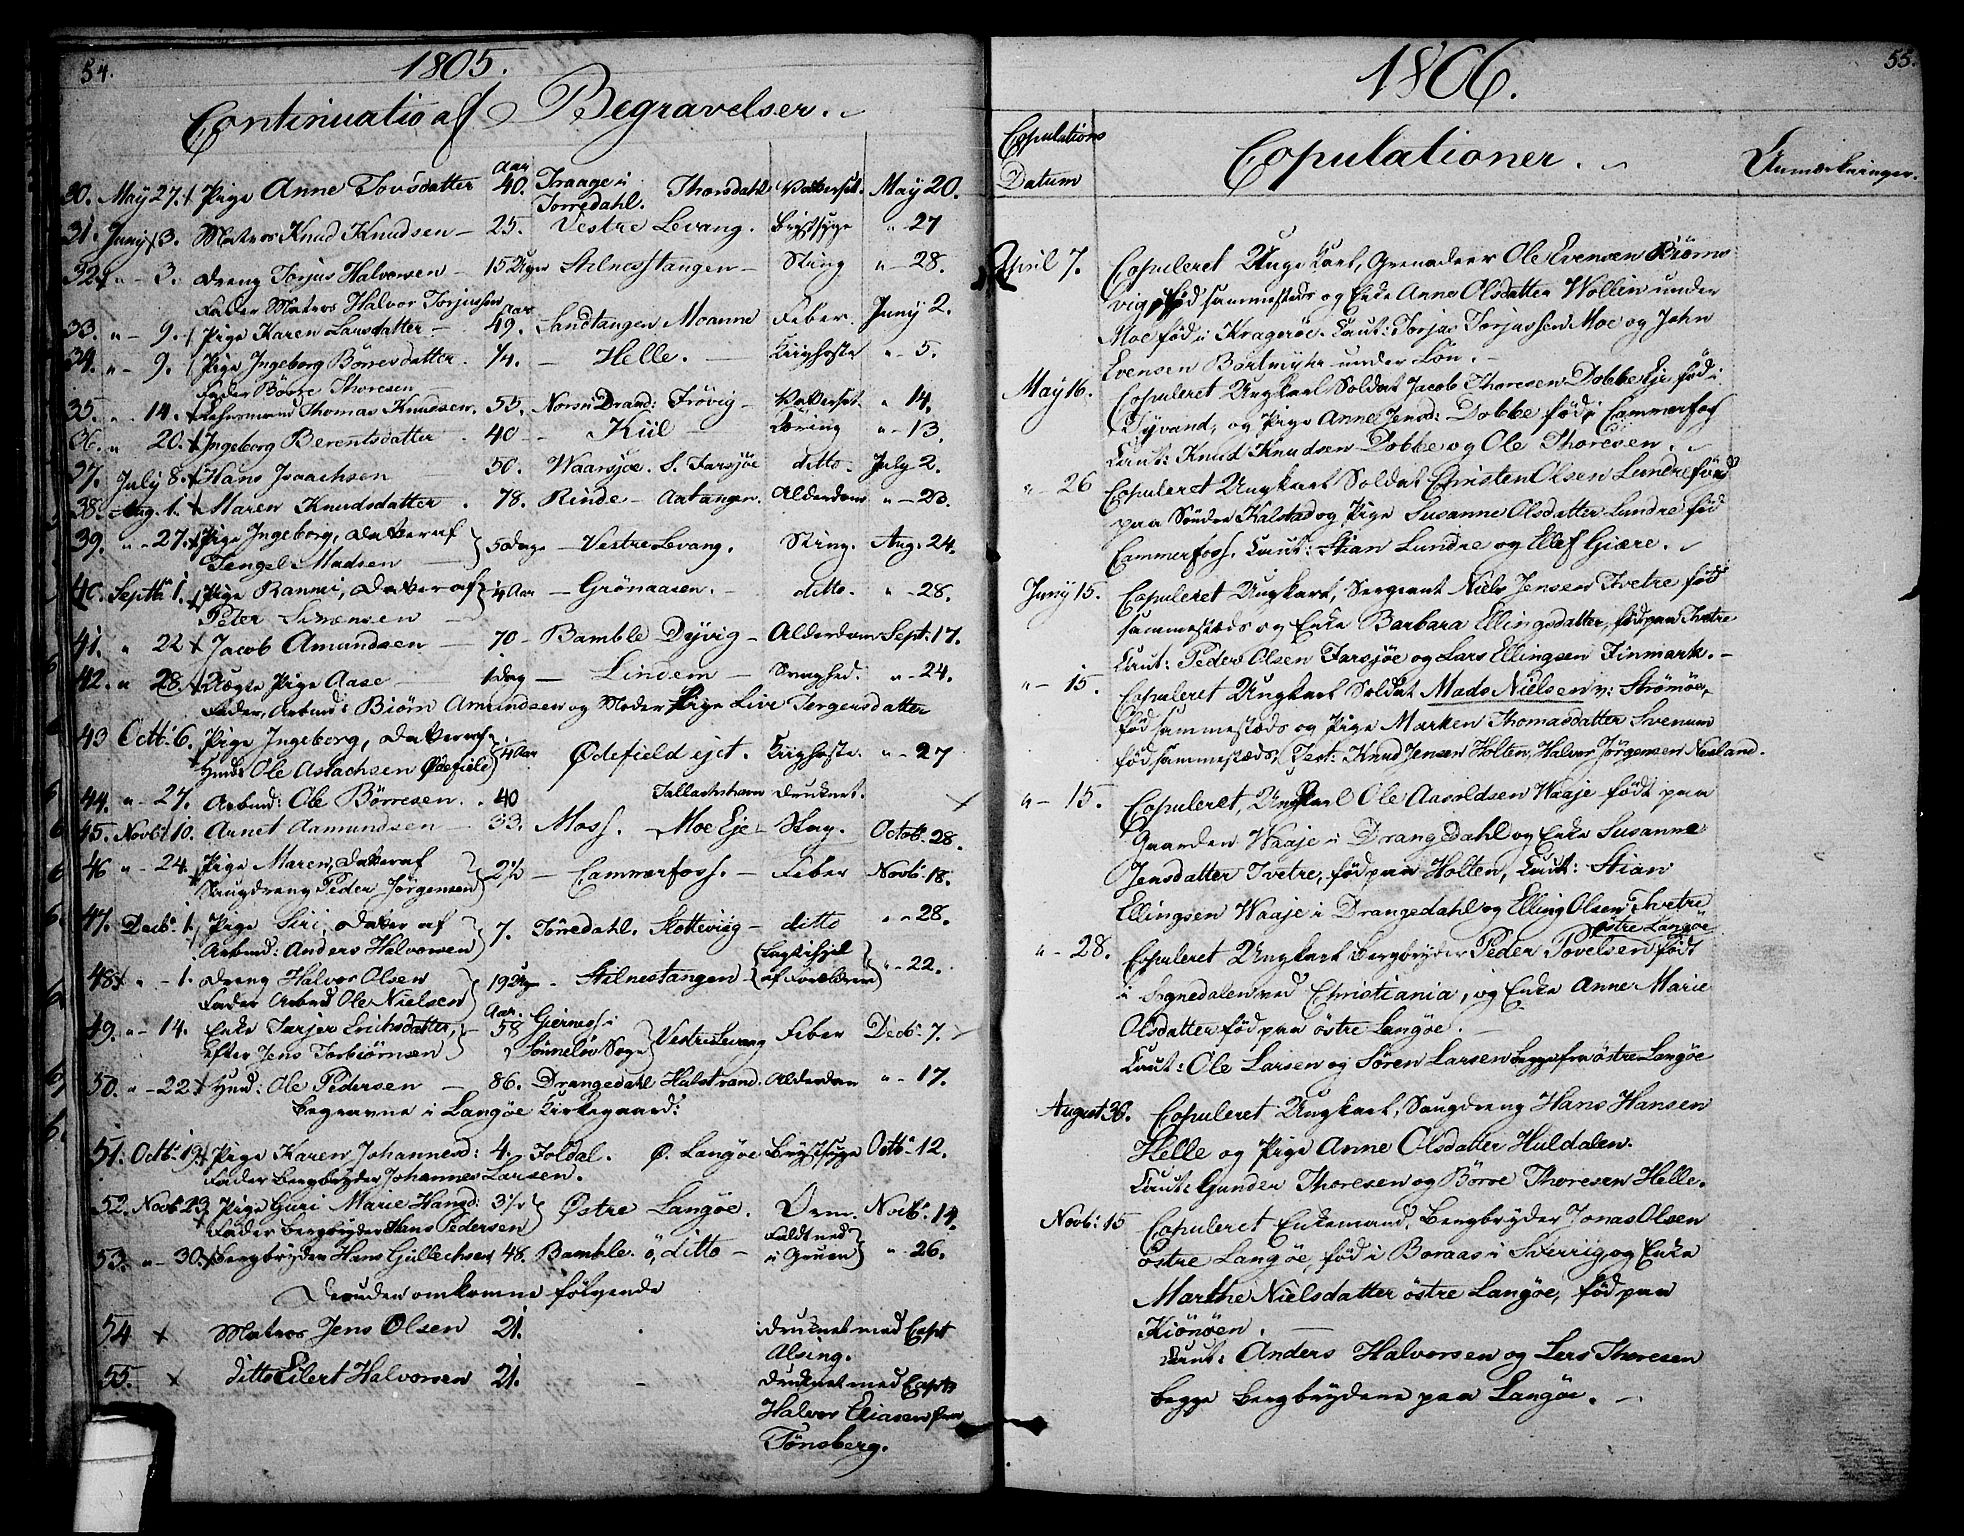 54.
1805.
Continuatio af Begravelser.
Aar
30. May 27. Pige Anne Tovsdatter 40. Kraage i Torredahl. Thorsdahl Vattersot. May 20.
31. Juny 3. Matros Knud Knudsen 25. Vestre Levang. Brystsyge " 27
32. " 3. Dreng Torjus Halvorsen 15 Uger Stilnestangen Sting " 28.
Fader Matros Halvor Torjussen
33. " 9. Pige Karen Larsdatter 49. Aar Sandtangen Moanne Feber. Juny 2.
34. " 9. Pige Ingeborg Börresdatter 1/4. Helle. Kighoste " 5.
Fader Börre Thoresen
35. " 14. Thomas Knudsen. 55. Frövig Vattersot. " 14.
36. " 20. Ingeborg Berentsdatter 40 Kiil " 13.
37. July 8. Hans Isaachsen 50. Waarsjöe. S. Farsjöe ditto. July 2.
38. Aug. 1. Maren Knudsdatter 78. Rinde Aatangen. Alderdom " 23.
39. " 27. Pige Ingeborg, Datter af
Tengel Madsen 5 Dage Vestre Levang. Sting. Aug. 24.
40. Septb: 1. Pige , Datter af
Peter Sörensen 4 Aar Grönaasen. ditto. " 28.
41. " 22 Jacob Amundsen 70 Bamble Dÿvig Alderdom Sept: 17.
42. " 28. Uægte Pige Aase 1 Dag Lindem Svaghed. " 24.
Fader, Arbmd: Biörn Amundsen og Moder Pige Live Tergersdatter
43 Octb: 6. Pige Ingeborg, Datter af
Huusmd: Ole Aslachsen Ødefield 4 Aar Ødefield ejet. Kighoste. " 27
44. " 27. Arbmd: Ole Börresen. 40 Tallachshavn Druknet.
45. Novb: 10. Arnet Aamundsen 33. Moss. Moe Eje Slag. Octob: 28.
46 " 24. Pige Maren, Datter af
Saugdreng Peder Jörgensen 2½ Cammerfoss. Feber Novb: 18.
47. Decb: 1. Pige Siri, Datter af
Arbmd: Anders Halvorsen 7. Törredahl. Kottevig ditto " 28.
48 " 1. Dreng Halvor Olsen
Fader Arbmd Ole Nielsen 19 Uger Stilnestangen af Forældrene " 22.
49. " 14. Enke Tarjer Erichsdatter,
efter Jens Torbiörnsen Aar. 58 Giernes i
Sönnelöv Sogn Vestre Levang Feber Decb: 7.
50. " 22. Huusmd: Ole Pedersen 86. Drangedahl Halstrand. Alderdom " 17.
Begravne i Langöe Kirkegaard:
51. Octb: 19. Pige Karen Johannesd: 4. Foldal. Ø. Langöe Brystsyge Octb: 12.
Fader Bergbryder Johannes Larsen.
52. Novb: 23. Pige Guri Marie Hansd: 3½ Østre Langöe. Orm. Novb: 14.
Fader Bergbryder Hans Pedersen
53. " 30. Bergbryder Hans Gullechsen 48. Bamble. ö, ditto Faldt ned
i Gruen " 26.
Desuden omkomne fölgende
54 Matros Jens Olsen 21. Druknet med Capt
Alsing.
55. ditto Eilert Halvorsen 21. Druknet med Capt:
Halvor Eliasen fra
Tönsberg.
55.
1806.
Copulations
Datum
Copulationer.
Anmærkninger.
April 7. Copuleret Unge Karl, Grenadeer Ole Evensen Biörns
vig, föd sammesteds og Enke Anne Olsdatter Wollin under
Moe föd i Kragerøe. Caut: Torjus Torjussen Moe og John
Evensen Bartmyhr under Lön.
May 16. Copuleret Ungkarl Soldat Jacob Thoresen Dobbe Eje föd i
Tyvand, og Pige Anne Jensd: Dobbe föd i Cammerfos
Caut: Knud Knudsen Dobbe og Ole Thoresen.
" 26 Copuleret Ungkarl Soldat Christen Olsen Lundre föd
paa Söndre Kalstad og Pige Susanne Olsdatter Lundre föd
Cammerfoss. Caut: Stian Lundre og Ellef Giære.
Juny 15. Copuleret Ungkarl, Sergeant Niels Jensen Tvetre föd
sammesteds og Enke Barbara Ellingsdatter, föd paa Tvetre
Caut: Peder Olsen Farsjöe og Lars Ellingsen Finmark.
" 15. Copuleret Ungkarl Soldat Mads Nielsen v: Strömöe,
föd sammesteds og Pige Marken Thomasdatter Svenum
föd sammesteds, Test: Knud Jensen Holten, Halvor Jörgensen Næsland.
" 15. Copuleret, Ungkarl Ole Aasoldsen Waaje födt paa
Gaarden Waaje i Drangedahl og Enke Susanne
Jensdatter Tvetre, föd paa Holten, Caut: Stian
Ellingsen Waaje i Drangedahl og Elling Olsen Tvetre
" 28. Copuleret Ungkarl Bergbryder Peder Povelsen östre Langöe födt
i Sognedalen ved Christiania, og Enke Anne Marie
Olsdatter föd paa östre Langöe.
Caut: Ole Larsen og Sören Larsen begge fra östre Langöe
August 30. Copuleret Ungkarl, Saugdreng Hans Hansen
Helle og Pige Anne Olsdatter Huldalen.
Caut: Gunder Thoresen og Börre Thoresen Helle.
Novb: 15 Copuleret Enkemand, Bergbryder Jonas Olsen
östre Langöe, föd i Boraas i Sverrig og Enke
Marthe Nielsdatter östre Langöe, föd paa
Kiönöen.
Caut: Anders Halvorsen og Lers Thoresen
begge Bergbrydere paa Langöe.